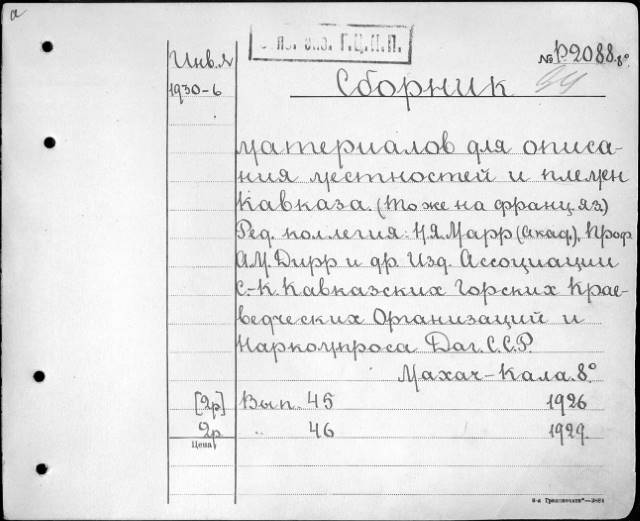 а
Об. экз. Г.Ц.К.П.
Инв. №
№ Р.2088. 8º
1930-6
Сборник
материалов для описа-
ния местностей и племен
Кавказа. (То же на франц. яз.)
Ред. коллегия: Н.Я. Марр (Акад.), Проф
А.М. Дирр и др. Изд. Ассоциации
С.-К. Кавказских Горских Крае-
ведческих Организаций и
Наркомпроса Даг. С.С.Р.
Махач-Кала. 8º
[2р] Вып. 45 1926
2р " 46 1929.
Цена